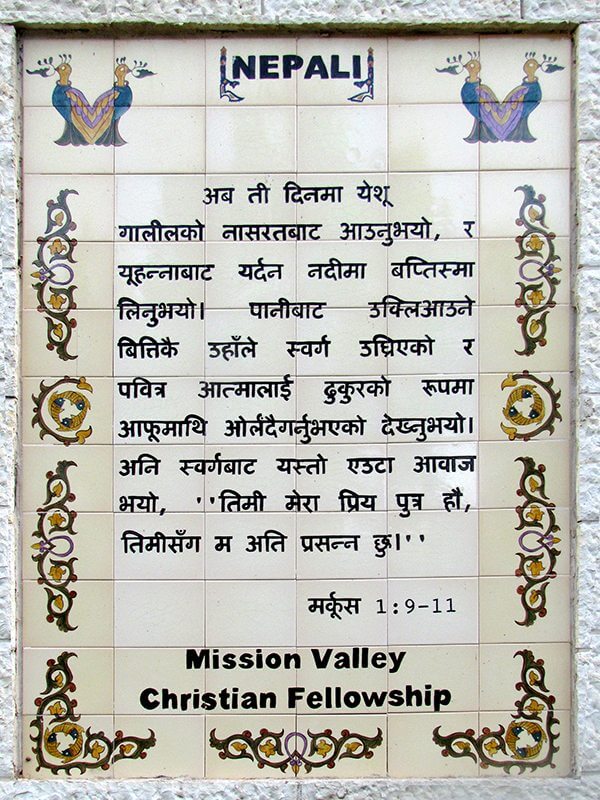 NEPALI
अब ती दिनमा येशू
गालीलको नासरतबाट आउनुभयो, र
यूहन्नाबाट यर्दन नदीमा बप्तिस्मा
लिनुभयो। पानीबाट उक्लिआउने
बित्तिकै उहाँले स्वर्ग उघ्रिएको र
पवित्र आत्मालाई ढुकुरको रूपमा
आफूमाथि ओर्लंदैगर्नुभएको देख्नुभयो।
अनि स्वर्गबाट यस्तो एउटा आवाज
भयो, ''तिमी मेरा प्रिय पुत्र हौ,
तिमीसँग म अति प्रसन्न छु।''
मर्कूस 1:9-11
Mission Valley
Christian Fellowship